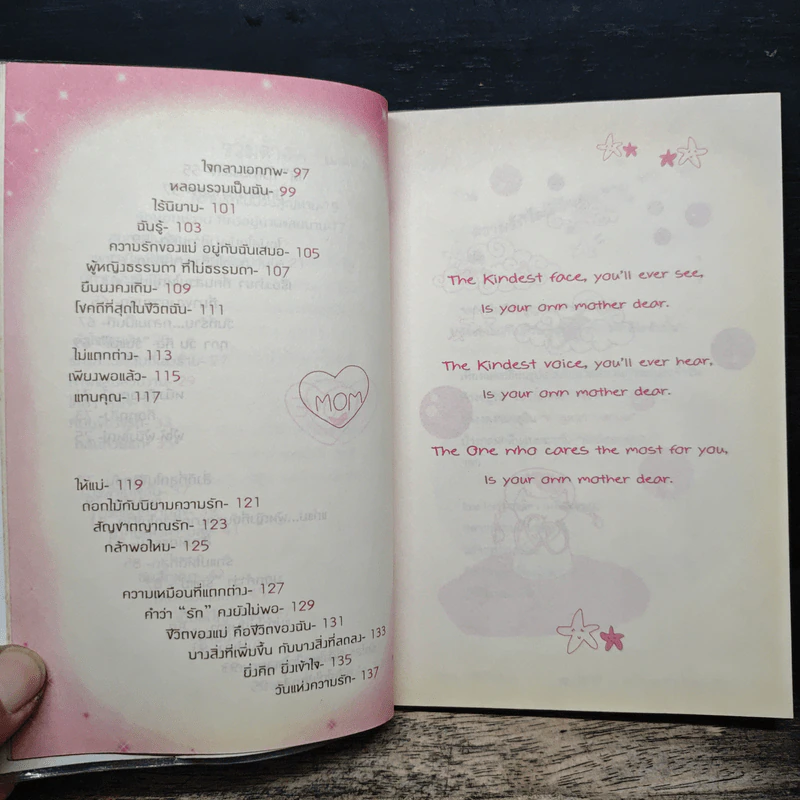 ใจกลางเอกภพ- 97
หลอมรวมเป็นฉัน- 99
ไร้นิยาม- 101
ฉันรู้- 103
ความรักของแม่ อยู่กับฉันเสมอ- 105
ผู้หญิงธรรมดา ที่ไม่ธรรมดา- 107
ยืนยงคงเดิม- 109
โชคดีที่สุดในชีวิตฉัน- 111
ไม่แตกต่าง- 113
เพียงพอแล้ว- 115
แทนคุณ- 117
MOM
ให้แม่- 119
ดอกไม้กับนิยามความรัก- 121
สัญชาตญาณรัก- 123
กล้าพอไหม- 125
ความเหมือนที่แตกต่าง- 127
คำว่า "รัก" คงยังไม่พอ- 129
ชีวิตของแม่ คือชีวิตของฉัน- 131
บางสิ่งที่เพิ่มขึ้น กับบางสิ่งที่ลดลง- 133
ยิ่งคิด ยิ่งเข้าใจ- 135
วันแห่งความรัก- 137
The Kindest face, you'll ever see,
Is your own mother dear.
The Kindest voice, you'll ever hear,
Is your own mother dear.
The One who cares the most for you,
Is your own mother dear.